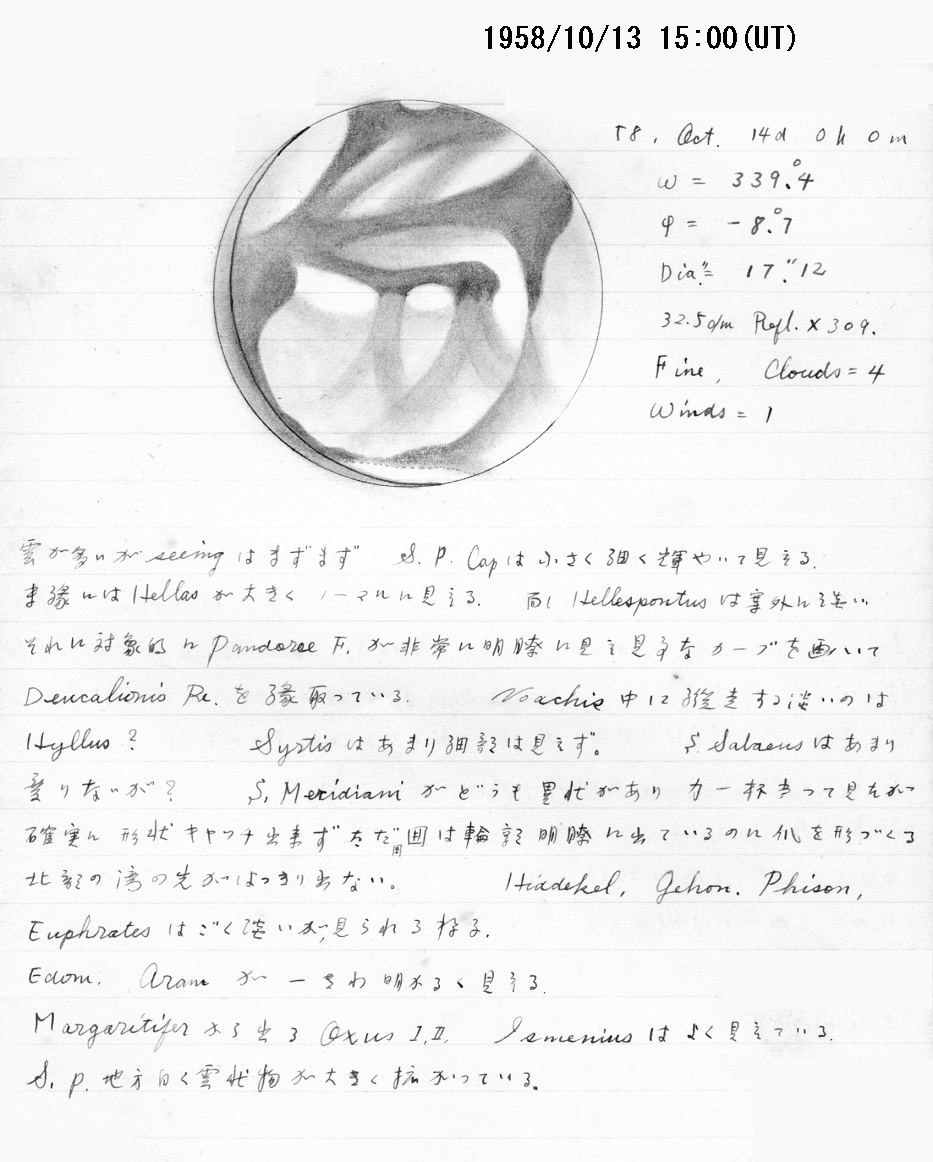 1958/10/13 15:00(UT)
58. Oct. 14d 0h 0m
ω = 339.°4
φ = -8.°7
Dia. = 17."12
32.5cm Refl. × 309.
Fine, Clouds = 4
Winds = 1
雲が多いが seeing はまずまず S. P. Cap は小さく細く輝やいて見える.
東縁には Hellas が大きくノーマルに見える. 而し Hellespontus は案外に淡い
それに対象的に Pandorae F. が非常に明瞭に見え見事なカーブを画いて
Deucalionis Re. を縁取っている. Noachis 中に縦走する淡いのは
Hyllus ? Syrtis はあまり細部は見えず。 S. Sabaeus はあまり
ないが? S. Meridiani がどうも異状があり 力一杯 見たが
確実に形状キャッチ出来ずただ周囲は輪郭明瞭に出ているのに爪を形づくる
北部の湾の先がはっきり出ない。 Hiddekel, Gehon. Phison,
Euphrates はごく淡いが見られる様子.
Edom. Aram が一きわ明かるく見える.
Margaritifer から出る Oxus I, II. Ismenius はよく見えている.
S. p. 地方白く雲状物が大きく拡がっている。